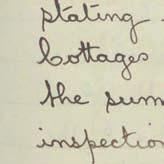 stating
Cottages
the sum
inspection